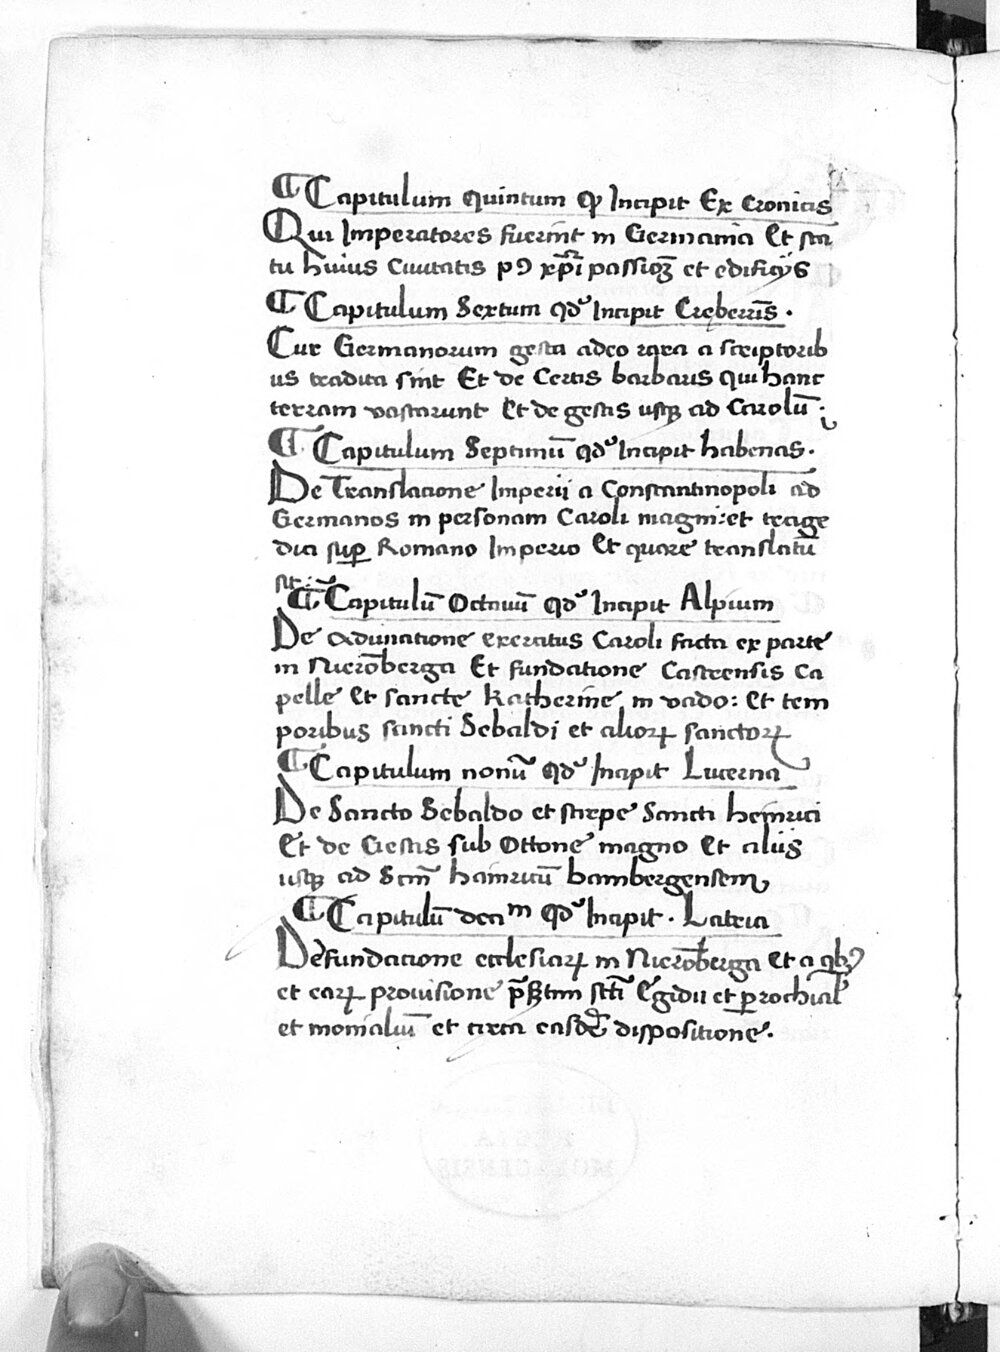 ¶ Capitulum quintum qď Incipit Ex Cronicis
Qui Imperatores fuerint in Germania Et sta
tu huius Ciuitatis pꝰ xp̄i passioꝫ et edificijs
¶ Capitulum Sextum qď Incipit Creberrīs.
Cur Germanorum gesta adeo rara a scriptorib
us tradita sint Et de Certis barbaris qui hanc
terram vastarunt Et de gestis usqꝫ ad Carolū:
¶ Capitulum Septimū qď Incipit habenas.
De Translacione Imperii a Constantinopoli ad
Germanos in personam Caroli magni: et trage
dia suꝑ Romano Imperio Et quare translatū
sit:
¶ Capitulū Octauū qď Incipit Alpium
De adunatione exercitus Caroli facta ex parte
in Nierōberga Et fundatione Castrensis Ca
pelle Et sancte Katherine in vado: Et tem
poribus sancti Sebaldi et alioꝝ sanctoꝝ
¶ Capitulum nonū qď Incipit Lucerna
De Sancto Sebaldo et stirpe Sancti heinrici
Et de Gestis sub Ottone magno Et alijs
usqꝫ ad Sctm̄ hainricū bambergensem
¶ Capitulū decim qď Incipit. Latria
De fundacione ecclesiaꝝ in Nierōberga Et a qbꝰ
et eaꝝ prouisione scti Egidii et ꝑrochial
et monialiū et circa easdē dispositione.